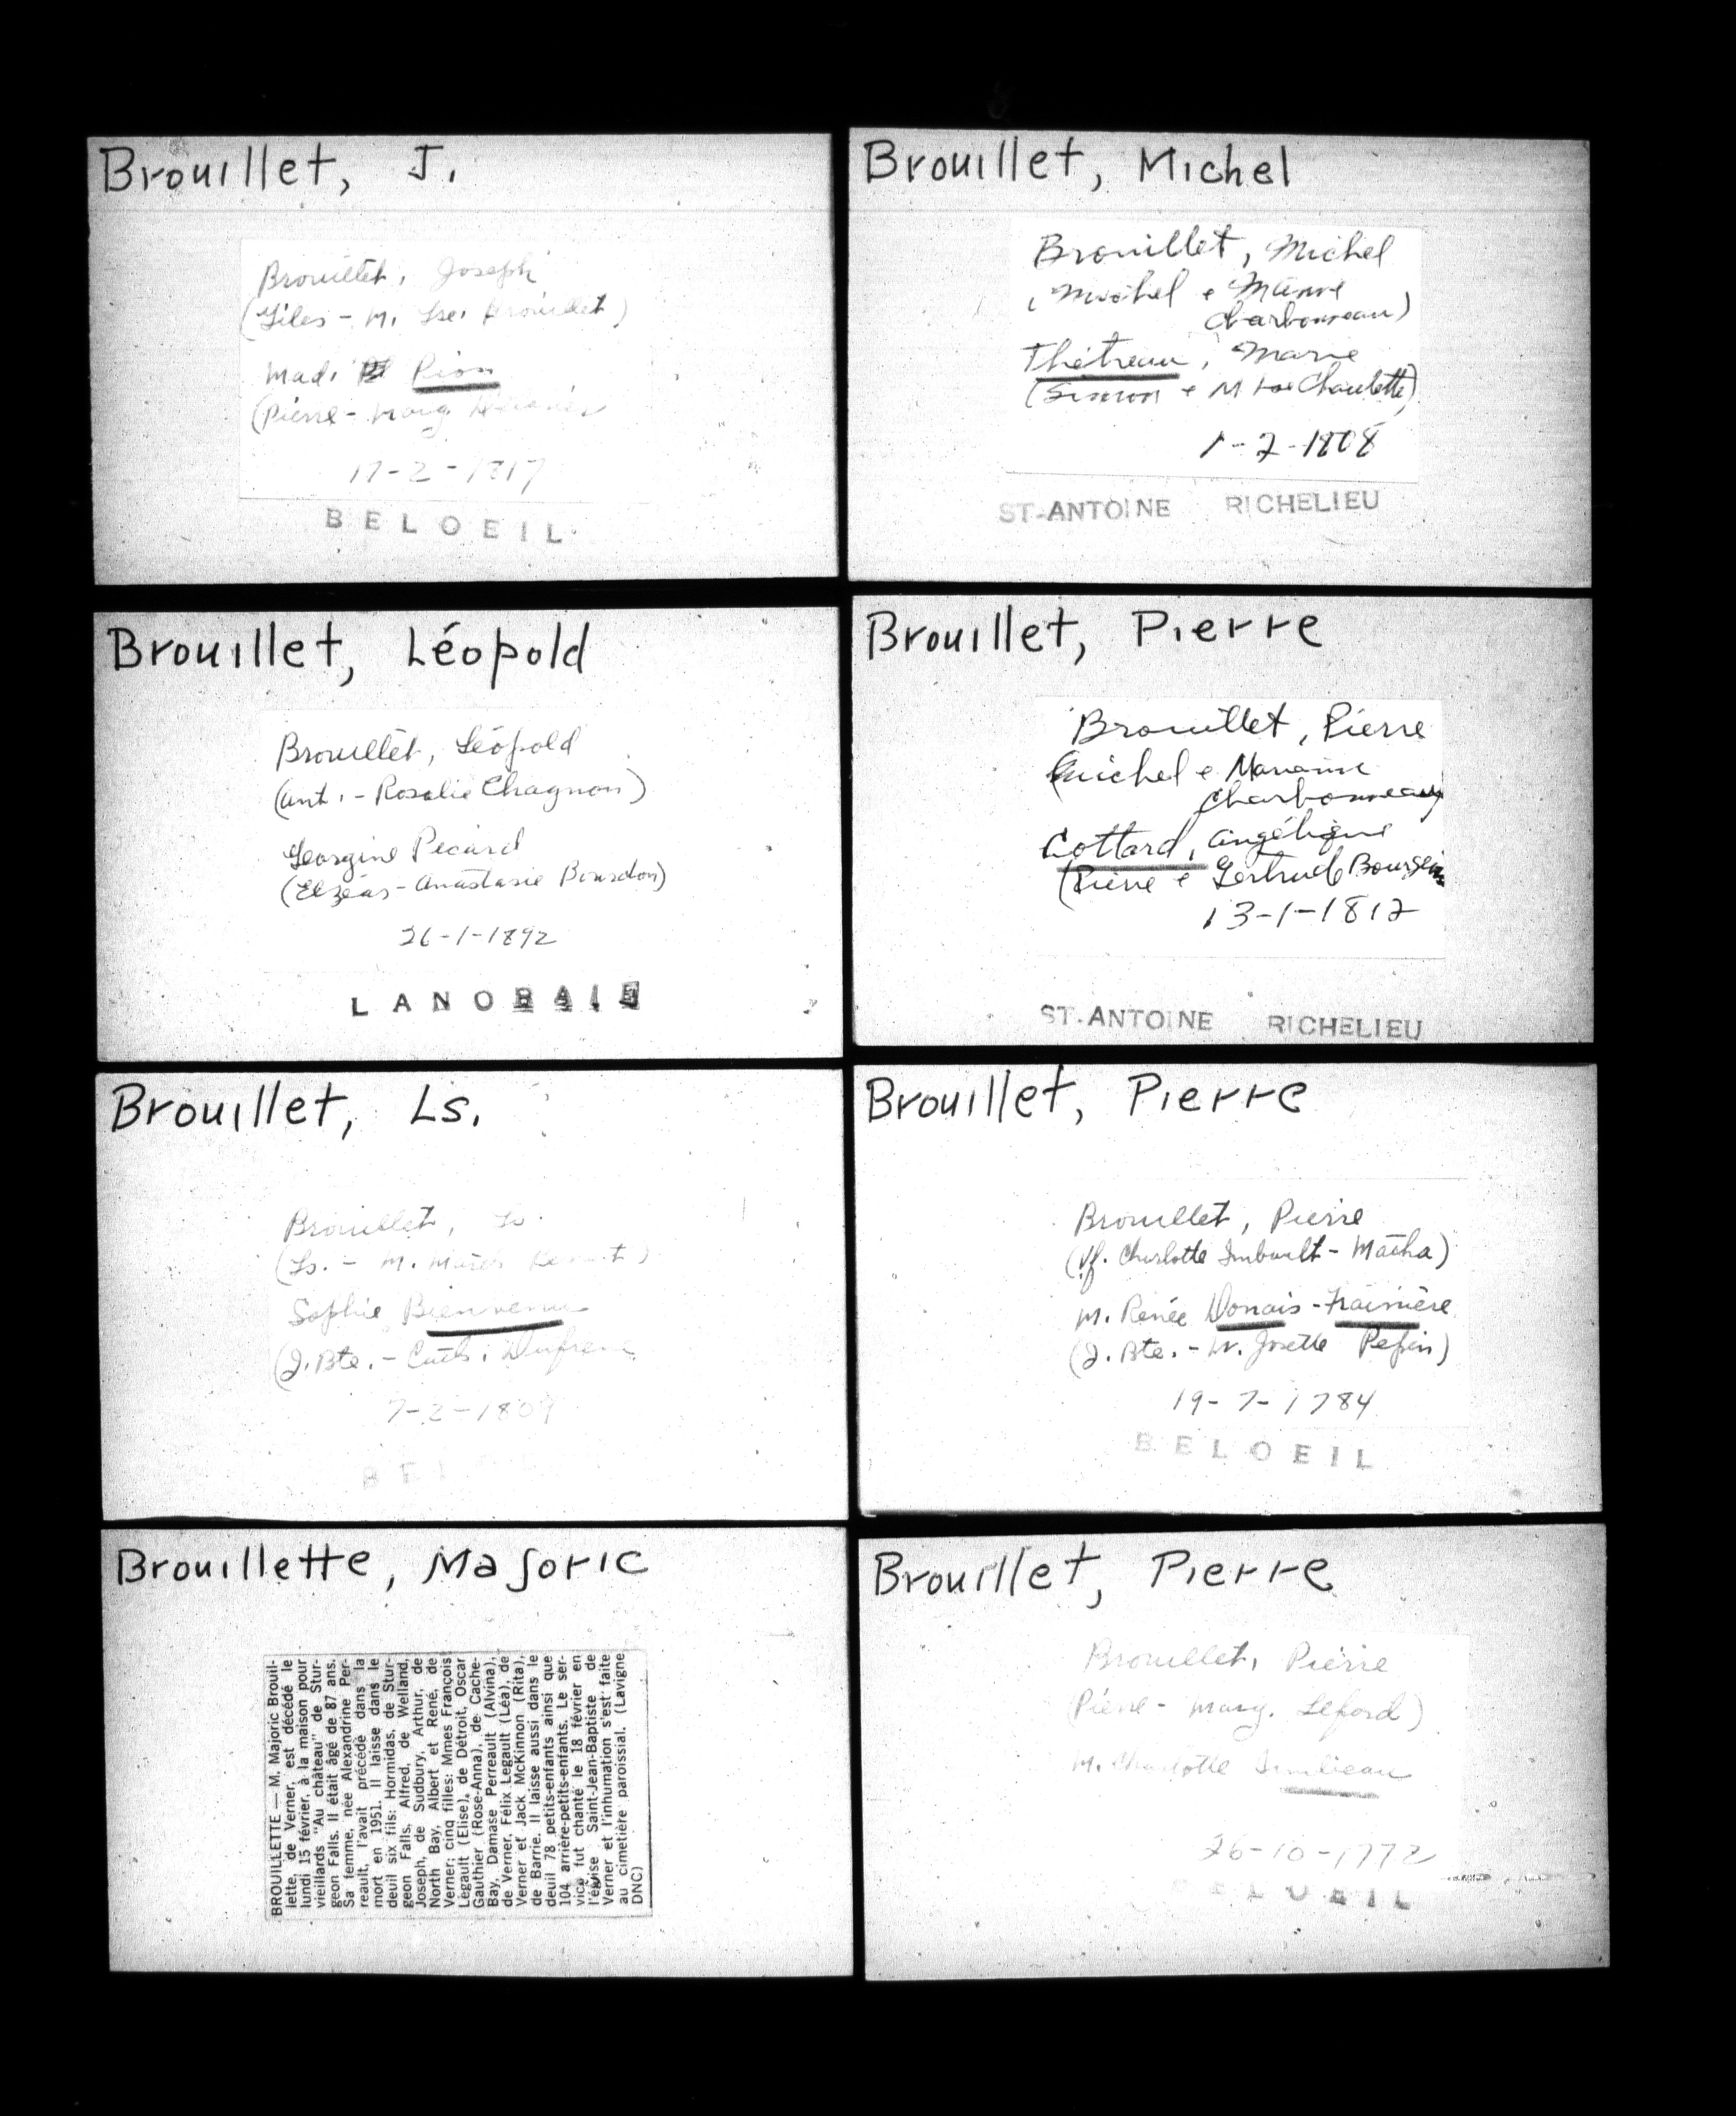 Brouillet, J.
Brouillet, Joseph
(Giles - M. Lse. Brouillet)
Mad. Pion
(Pierre - Marg.
17-2-1817
BELOEIL
Brouillet, Léopold
Brouillet, Léopold
(Ant. - Rosalie Chagnon)
Georgine Picard
(Elzéas - Anastasie Bourdon)
26-1-1892
LANORAIE
Brouillet, Ls.
Brouillet, Ls.
(Ls. - M.
Sophie Bienvenue
(J. Bte. - Cath. Dufresne
7-2-1809
BEL
Brouillette, Majoric
BROUILLETTE — M. Majoric Brouil-
lette, de Verner, est décédé le
lundi 15 février, à la maison pour
vieillards "Au château" de Stur-
geon Falls. Il était âgé de 87 ans.
Sa femme, née Alexandrine Per-
reault, l'avait précédé dans la
mort en 1951. Il laisse dans le
deuil six fils: Hormidas, de Stur-
geon Falls, Alfred, de Welland,
Joseph, de Sudbury, Arthur, de
North Bay, Albert et René, de
Verner; cinq filles: Mmes François
Legault (Elise), de Détroit, Oscar
Gauthier (Rose-Anna), de Cache-
Bay, Damase Perreault (Alvina),
de Verner, Félix Legault (Léa), de
Verner et Jack McKinnon (Rita),
de Barrie. Il laisse aussi dans le
deuil 78 petits-enfants ainsi que
104 arrière-petits-enfants. Le ser-
vice fut chanté le 18 février en
l'église Saint-Jean-Baptiste de
Verner et l'inhumation s'est faite
au cimetière paroissial. (Lavigne
DNC)
Brouillet, Michel
Brouillet, Michel
(Michel e Marie
Charbonneau)
Thétreau, Marie
(Simon e M Lse Chaulette)
1-2-1808
ST-ANTOINE RICHELIEU
Brouillet, Pierre
Brouillet, Pierre
(Michel e Marianne
Charbonneau)
Cottard, Angélique
(Pierre e Gertrude Bourgeois
13-1-1812
ST-ANTOINE RICHELIEU
Brouillet, Pierre
Brouillet, Pierre
(Vf. Charlotte Imbault-Matha)
M. Renée Donais-Frainière
(J. Bte. - M. Josette Pepin)
19-7-1784
BELOEIL
Brouillet, Pierre
Brouillet, Pierre
(Pierre - Marg. Leford)
M. Charlotte
26-10-1772
BELOEIL